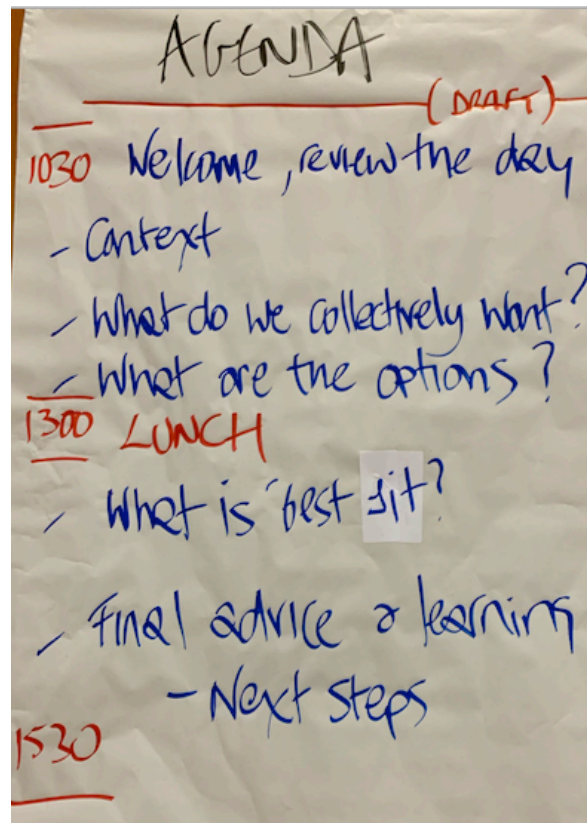 AGENDA
(DRAFT)
1030 Welcome, review the day
- Context
- What do we collectively want?
- What are the options?
1300 LUNCH
- What is 'best fit?
- Final advice & learning
- Next steps
1530